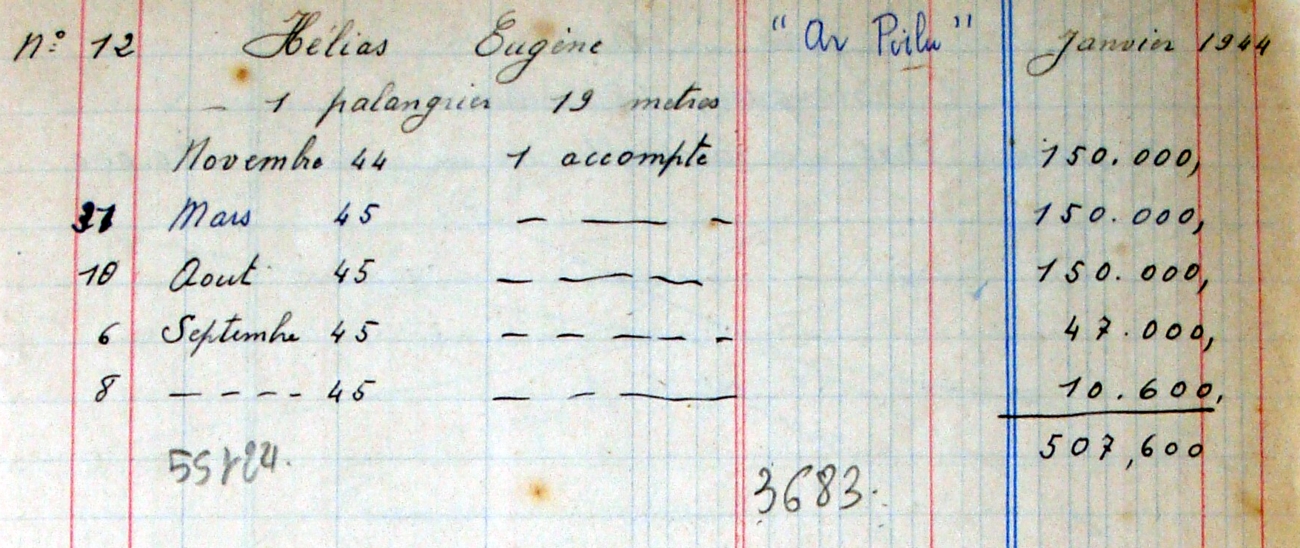 N° 12 Hélias Eugène "Ar Poilu" Janvier 1944
- 1 palangrier 19 metres
Novembre 44 1 accompte 150.000,
31 Mars 45 - — - 150.000,
10 Aout 45 — — - 150.000,
6 Septembre 45 - - — - - 47.000,
8 - - - - 45 — - — 10.600,
507,600
3683.